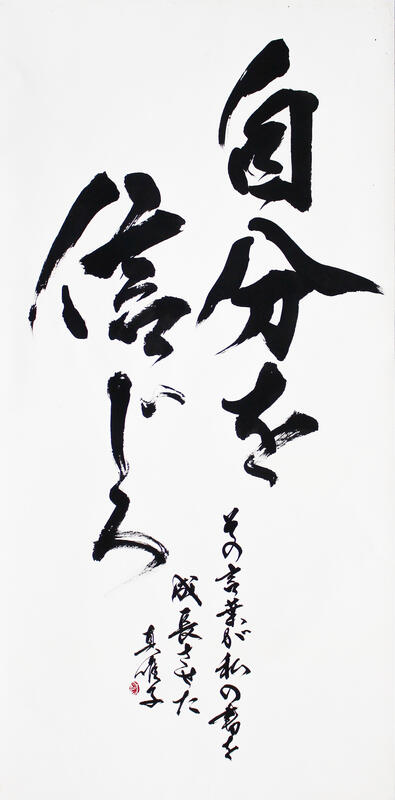 自分を
信じろ
その言葉が私の書を
成長させた
真唯子